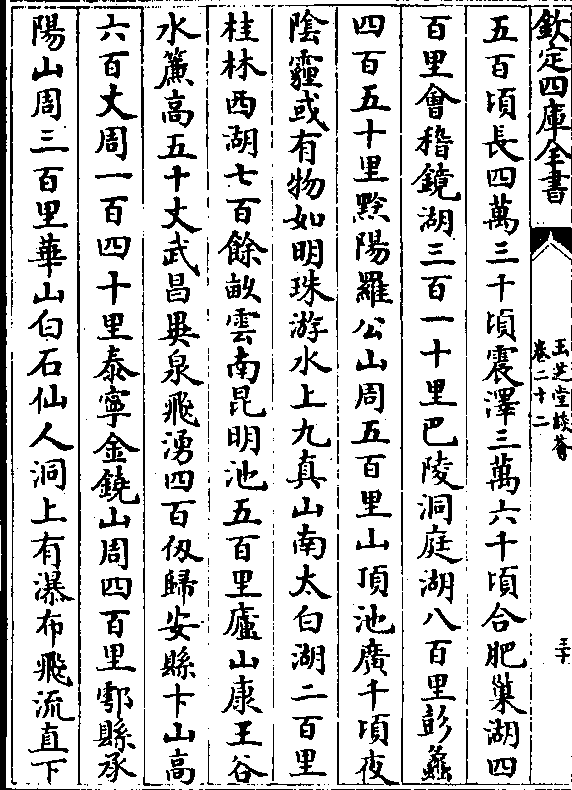 欽定四庫全書
玉芝堂談薈
卷二十二
五百頃長四萬三千頃震澤三萬六千頃合肥巢湖四
百里會稽鏡湖三百一十里巴陵洞庭湖八百里彭蠡
四百五十里黟陽羅公山周五百里山頂池廣千頃夜
陰霾或有物如明珠游水上九真山南太白湖二百里
桂林西湖七百餘畝雲南昆明池五百里廬山康王谷
水簾高五十丈武昌異泉飛湧四百仭歸安縣卞山高
六百丈周一百四十里泰寧金鐃山周四百里鄠縣承
陽山周三百里華山白石仙人洞上有瀑布飛流直下